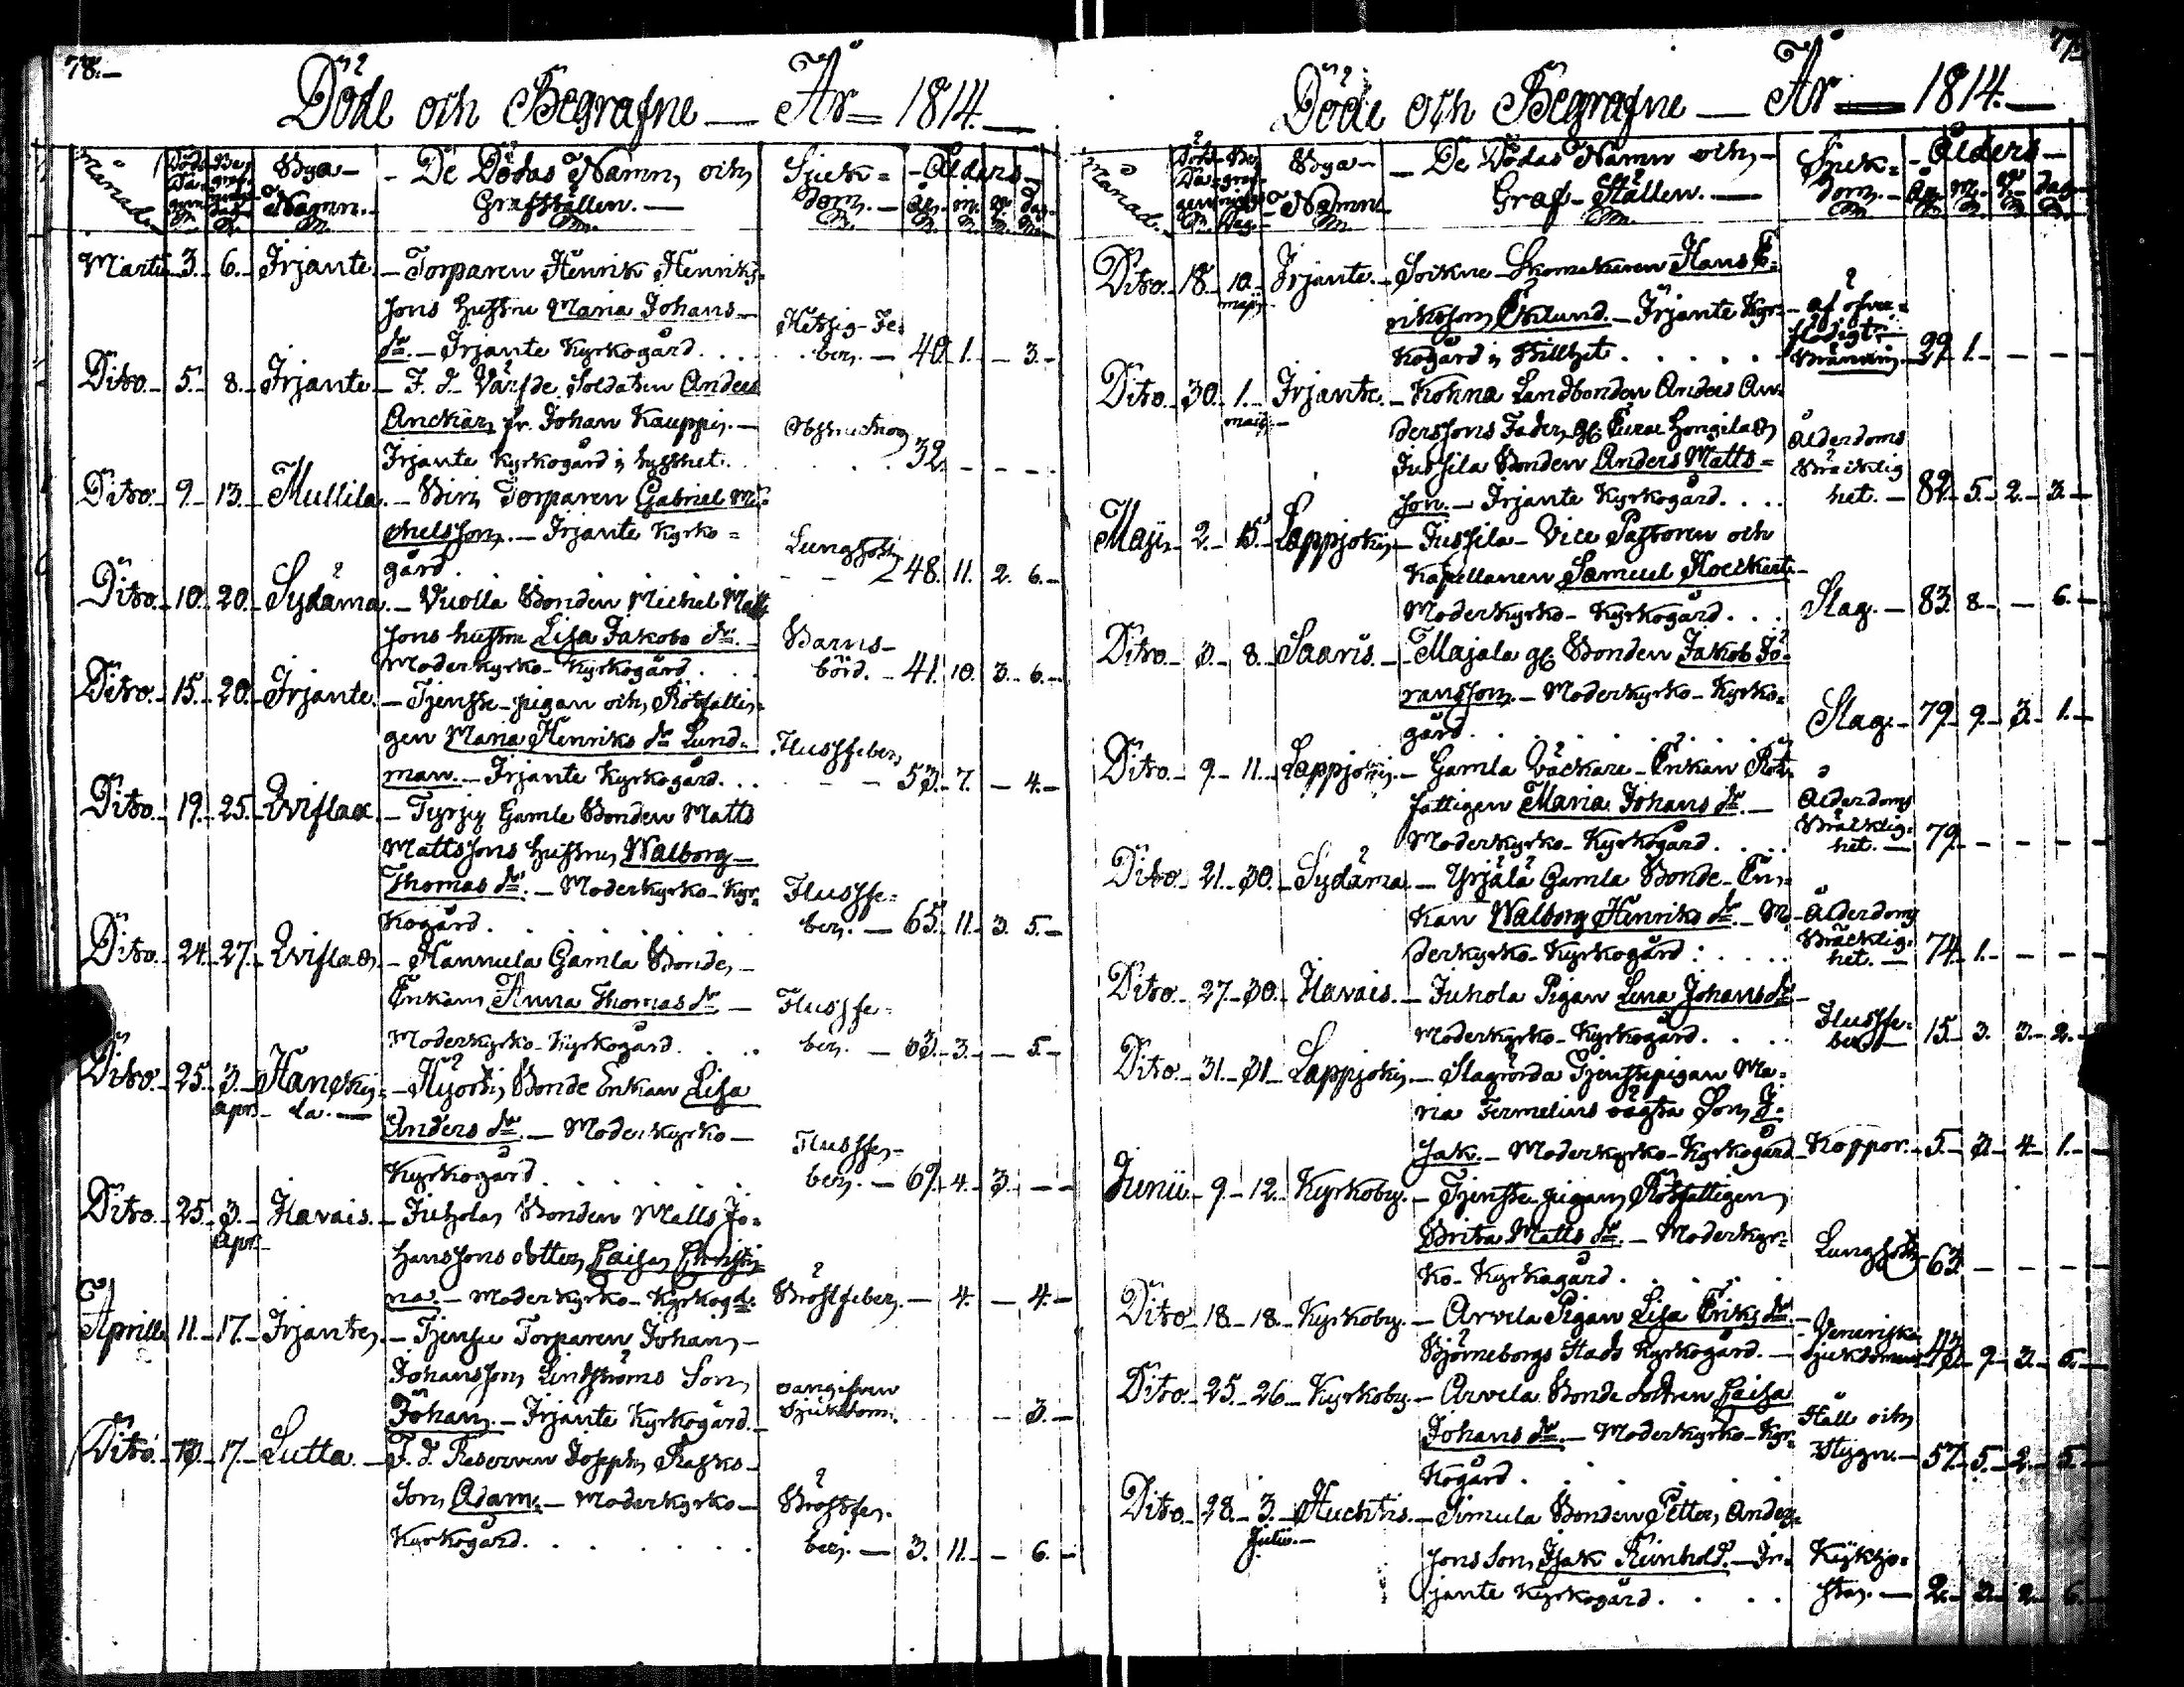 78.
Döde och Begrafne — År = 1814.
Månad. Döde Dagen Begrafnings Dag Bya-Namn. De Dödas Namn, och Grafställen. Sjuk=dom. Ålders år. m. v. dag.
Martii 3. 6. Irjante. Torparen Henrik Henriks=
sons hustru Maria Johans
dr. Irjante Kyrkogård. . . . Hetsig Fe=ber. 40. 1. — 3.
Dito. 5. 8. Irjante F. d. Värfde Soldaten Anders
Anckar, fr. Johan Kauppi.
Irjante Kyrkogård i hysthet. Obstruction 32. — — —
Dito. 9. 13. Mullila. Torparen Gabriel Mi=
chelsson. Irjante Kyrko=
gård. Lungsot 48. 11. 2. 6.
Dito. 10. 20. Sydäma. Vuolla Bonden Michel Matts
sons hustru Lisa Jakobs dr.
Moderkyrko-Kyrkogård. Barns-börd. 41. 10. 3. 6.
Dito. 15. 20. Irjante. Tjenste-pigan och Rotfatti=
gen Maria Henriks dr Lund=
man. Irjante Kyrkogård. . . Flussfeber 53. 7. — 4.
Dito. 19. 25. Eviflax. Tyrjy Gamle Bonden Matts
Mattssons hustru, Walborg
Thomas dr. Moderkyrko-Kyr=
kogård. Flussfe=ber. 65. 11. 3. 5.
Dito. 24. 27. Eviflax. Hannula Gamla Bonde,
Enkan, Anna Thomas dr.
Moderkyrko-Kyrkogård. Flussfe=ber. 63. 3. — 5.
Dito. 25. 3. Apr. Hancki=la. Bonde Enkan Lisa
Anders dr. Moderkyrko
Kyrkogård. Flussfe=ber. 69. 4. 3. —
Dito. 25. 3. Apr. Havais. Juhola, Bonden Matts Jo=
hanssons dotter, Caisa Christi=
na. Moderkyrko-Kyrkogd. Bröstfeber. — 4. — 4.
Aprill 11. 17. Irjante, Torparen Johan
Johansson Lindströms Son,
Johan. Irjante Kyrkogård. oangifven Sjukdom. — 3.
Dito. 13. 17. Lutta. F. d. Reserven Joseph Rasks
Son, Adam. Moderkyrko
Kyrkogård. Bröstfe=ber. 3. 11. — 6.
Döde och Begrafne — År — 1814.
Månad. Döde Dagen Begrafnings Dag. Bya-Namn De Dödas Namn och, Graf-Ställen. Sjuk=dom. Ålders År. M. V. dag.
Dito. 18. 10. maji Irjante. Soikne Skomakaren Hans E=
riksson Ekelund. Irjante Kyr=
kogård i stillhet. af öfver=flödigt Bränvin. 29. 1. — — —
Dito. 30. 1. maji Irjante. Kohna Landbonden Anders An=
derssons Fader,
Jussila Bonden Anders Matts=
son. Irjante Kyrkogård. . . . Ålderdoms Bräcklighet. 82. 5. 2. 3.
Maji. 2. 15. Lappjoki. Jussila Vice Pastoren och
Kapellanen Samuel Hoeckert
Moderkyrko-Kyrkogård. . . . Slag. 83. 8. — 6.
Dito. 3. 8. Saaris. Majala gl. Bonden Jakob Jö=
ransson. Moderkyrko-Kyrko=
gård. Slag. 79. 9. 3. 1.
Dito. 9. 11. Lappjoki. Gamla Väckare-Enkan Rot=
fattigen Maria Johans dr.
Moderkyrko-Kyrkogård. . . . Ålderdoms Bräcklig=het. 79. — — —
Dito. 21. 30. Sydäma. Yrjälä Gamla Bonde-En=
kan Walborg Henriks dr. Mo=
derkyrko-Kyrkogård. Ålderdoms Bräcklig=het. 74. 1. — — —
Dito. 27. 30. Havais. Juhola Pigan Lena Johans dr.
Moderkyrko-Kyrkogård. Flussfe=ber. 15. 3. 3. 2.
Dito. 31. 31. Lappjoki. Tjenstepigan Ma=
ria Termelins oägta Son, I=
sak. Moderkyrko-Kyrkogård Koppor. 5. 3. 4. 1.
Junii. 9. 12. Kyrkoby. Tjenste-pigan, Rotfattigen,
Brita Matts dr. Moderkyr=
ko-Kyrkogård. Lungsot 63. — — —
Dito 18. 18. Kyrkoby. Arvela Pigan Lisa Eriks dr.
Björneborgs Stads Kyrkogård. Veneriska Sjukdomen 43. 9. 3. 5.
Dito. 25. 26. Kyrkoby. Arvela Bonde dottren Caisa
Johans dr. Moderkyrko-Kyr=
kogård. Håll och Stygn. 57. 5. 2. 5.
Dito. 28. 3. Julii. Huchtis. Simula Bonden Petter, Anders=
sons Son, Isak Reinhold. Ir=
jante Kyrkogård. Kikho=stan. 2. 3. 2. 6.